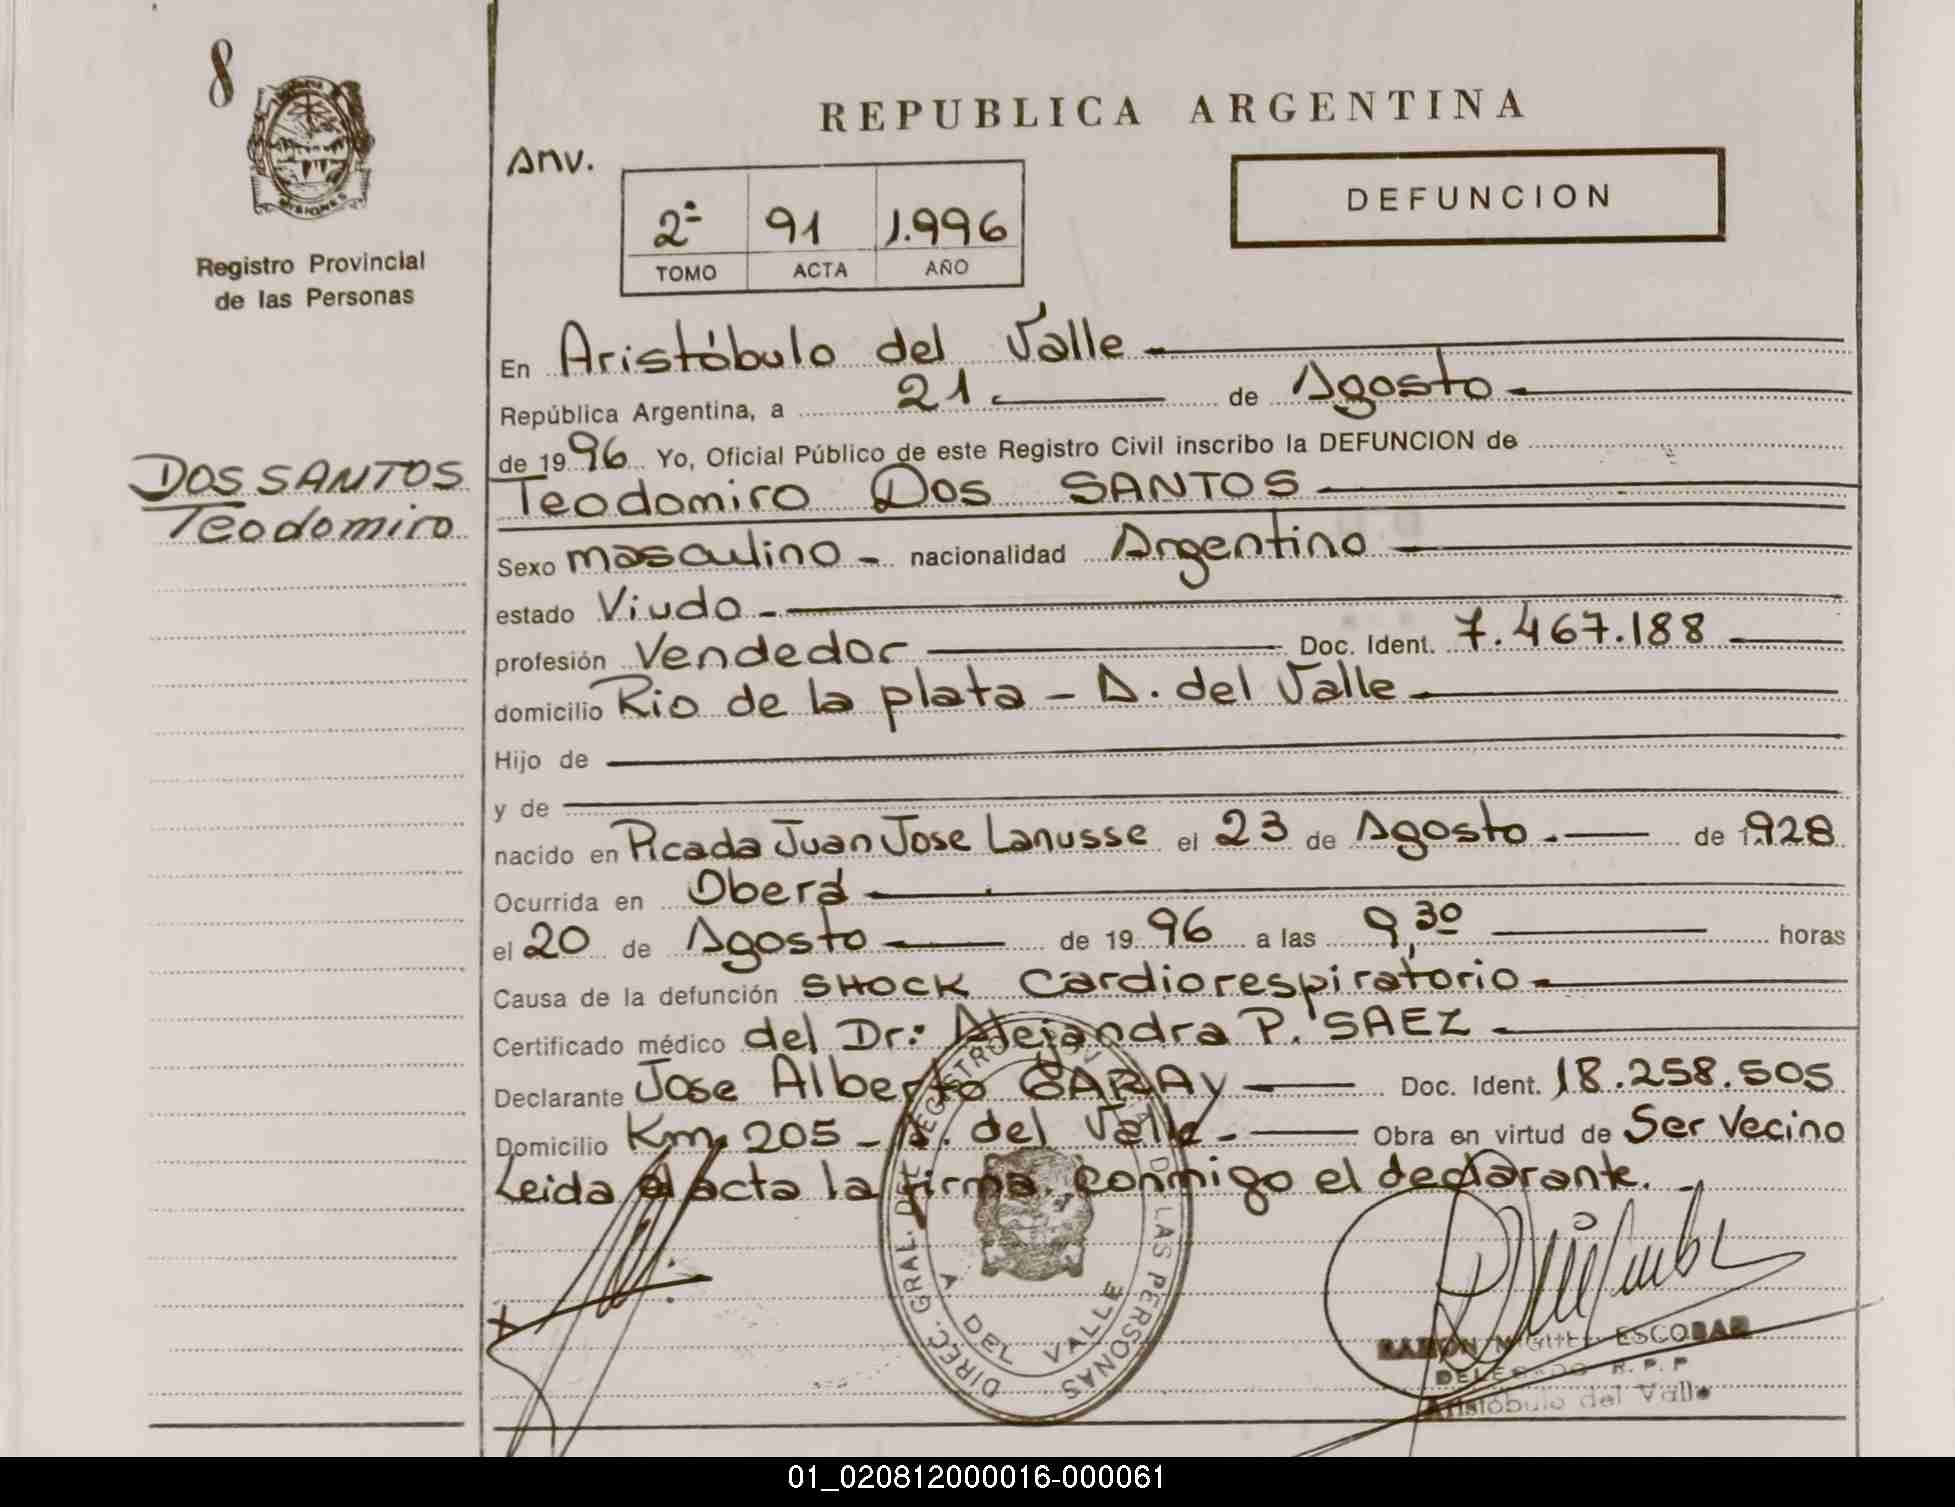 8
MISIONES
Registro Provincial
de las Personas
DOS SANTOS
Teodomiro
REPUBLICA ARGENTINA
Anv.
DEFUNCION
2ª 91 1.996
TOMO ACTA AÑO
En Aristóbulo del Valle
República Argentina, a 21 de Agosto
de 1996 Yo, Oficial Público de este Registro Civil inscribo la DEFUNCION de
Teodomiro Dos SANTOS
Sexo masculino - nacionalidad Argentino
estado Viudo
profesión Vendedor Doc. Ident. 7.467.188
domicilio Rio de la plata - A. del Valle
Hijo de
y de
nacido en Picada Juan Jose Lanusse el 23 de Agosto de 1.928
Ocurrida en Oberá
el 20 de Agosto de 1996 a las 9,30 horas
Causa de la defunción SHOCK Cardiorespiratorio
Certificado médico del Dr: Alejandra P. SAEZ
Declarante Jose Alberto GARAY Doc. Ident. 18.258.505
Domicilio Km. 205 - A. del Valle Obra en virtud de Ser Vecino
Leida el acta la firma conmigo el declarante.
DIREC. GRAL. DEL REGISTRO DE LAS PERSONAS
A DEL VALLE
RAMON MIGUEL ESCOBAR
DELEGADO R.P.P
Aristóbulo del Valle
01_020812000016-000061